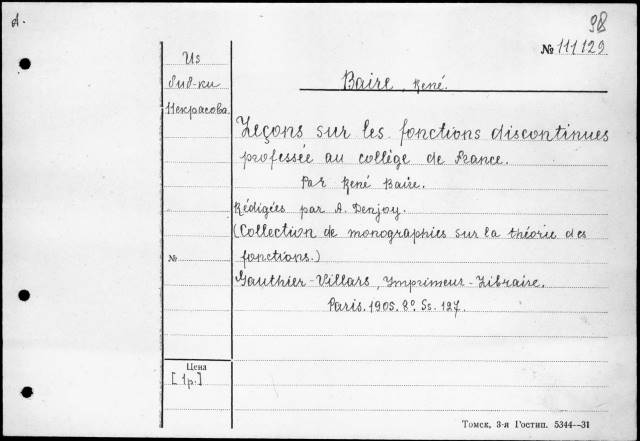 А.
98
№ 111129
Из
биб-ки
Некрасова.
Baire, René.
Leçons sur les fonctions discontinues
professée au collège de France.
Par René Baire.
Rédigées par A. Denjoy.
(Collection de monographies sur la théorie des
fonctions.)
№
Gauthier-Villars, Imprimeur-Libraire.
Paris. 1905. 8º. Ss. 127.
Цена
[1р.]
Томск, 3-я Гостип. 5344—31